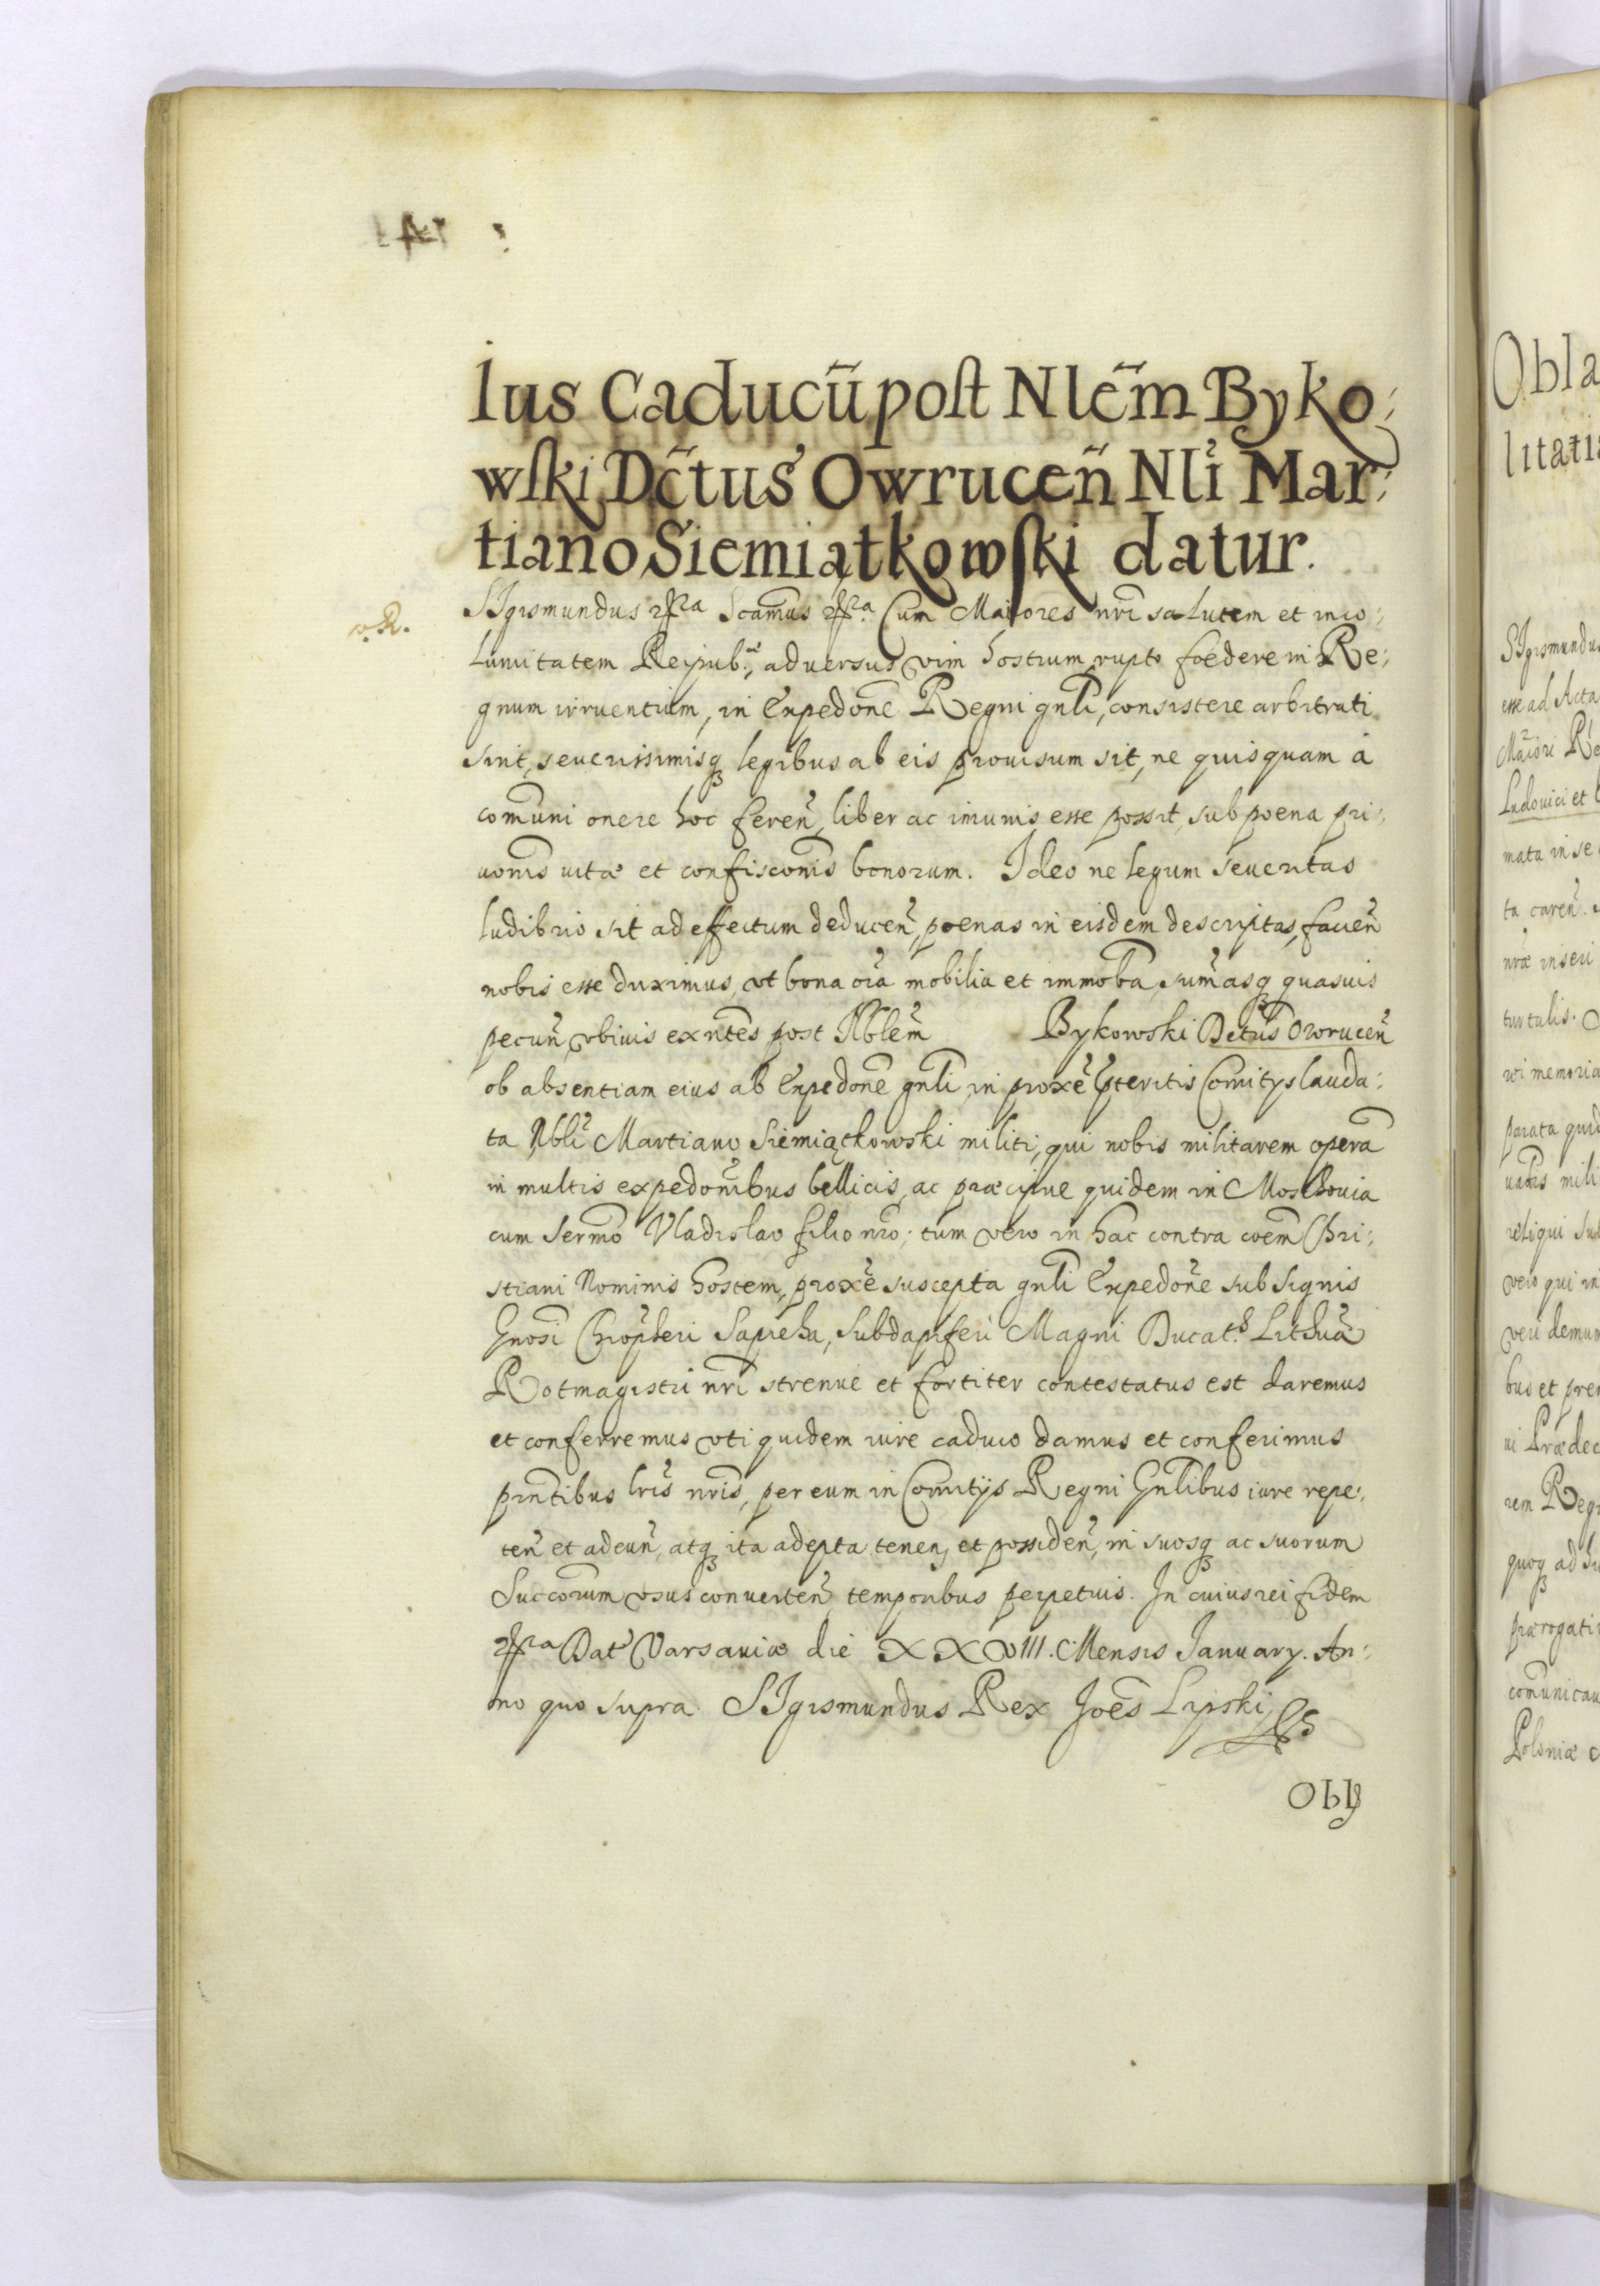 Ius Caducũ post Nlẽm Byko:
wſki Dc̃tus Owruceñ Nli Mar:
tiano Siemiątkowſki datur.
SIgismundus Cum Maiores nri salutem et inco:
lumitatem Reipub. adversus vim hostium, rupto foedere in Re:
gnum irruentium, in Expedone Regni gnli, consistere arbitrati
sint, severissimisq legibus ab eis provisum sit, ne quisquam à
comuni onere hoc feren, liber ac imunis esse possit, sub poena pri:
vonis vitæ et confisconis bonorum. Ideo ne legum severitas
ludibrio sit ad effectum deducen, poenas in eisdem descriptas, facien
nobis esse duximus, vt bona oia mobilia et immobla, sumasq quasvis
pecun vbivis exntes post Nblem Bykowski Dctus Owrucen
ob absentiam eius ab Expedone gnli, in proxe pteritis Comitys lauda:
ta, Nbli Martiano Siemiątkowski militi, qui nobis militarem opera
in multis expedonibus bellicis, ac præcipue quidem in Moschovia
cum Sermo Vladislao filio nro; tum vero in hac contra coem Chri:
stiani Nominis hostem, proxe suscepta gnli Expedone sub signis
Gnosi Chrophori Sapieha, Subdapiferi Magni Ducat. Lithua
Rotmagistri nri strenue et fortiter contestatus est daremus
et conferremus vti quidem iure caduco damus et conferimus
pntibus lris nris, per eum in Comitys Regni Gnlibus iure repe:
ten et adeun, atq ita adepta tenen, et possiden, in suosq ac suorum
Succorum vsus converten temporibus perpetuis. In cuius rei fidem
Dat Varsaviæ die XXVIII. Mensis January. An:
no quo supra. SIgismundus Rex Joes Lipski
Obl
Obla
litatis
SIgismundus
esse ad Acta
Maiori Re
Ludovici et
mata in se
ta caren.
nræ inseri
tur talis.
rei memoria
parata quid
mili
reliqui sub
vero qui in
veri demum
bus et pre
ni Prædec
rem Regn
quoq ad
prærogati
comunicau
Poloniæ